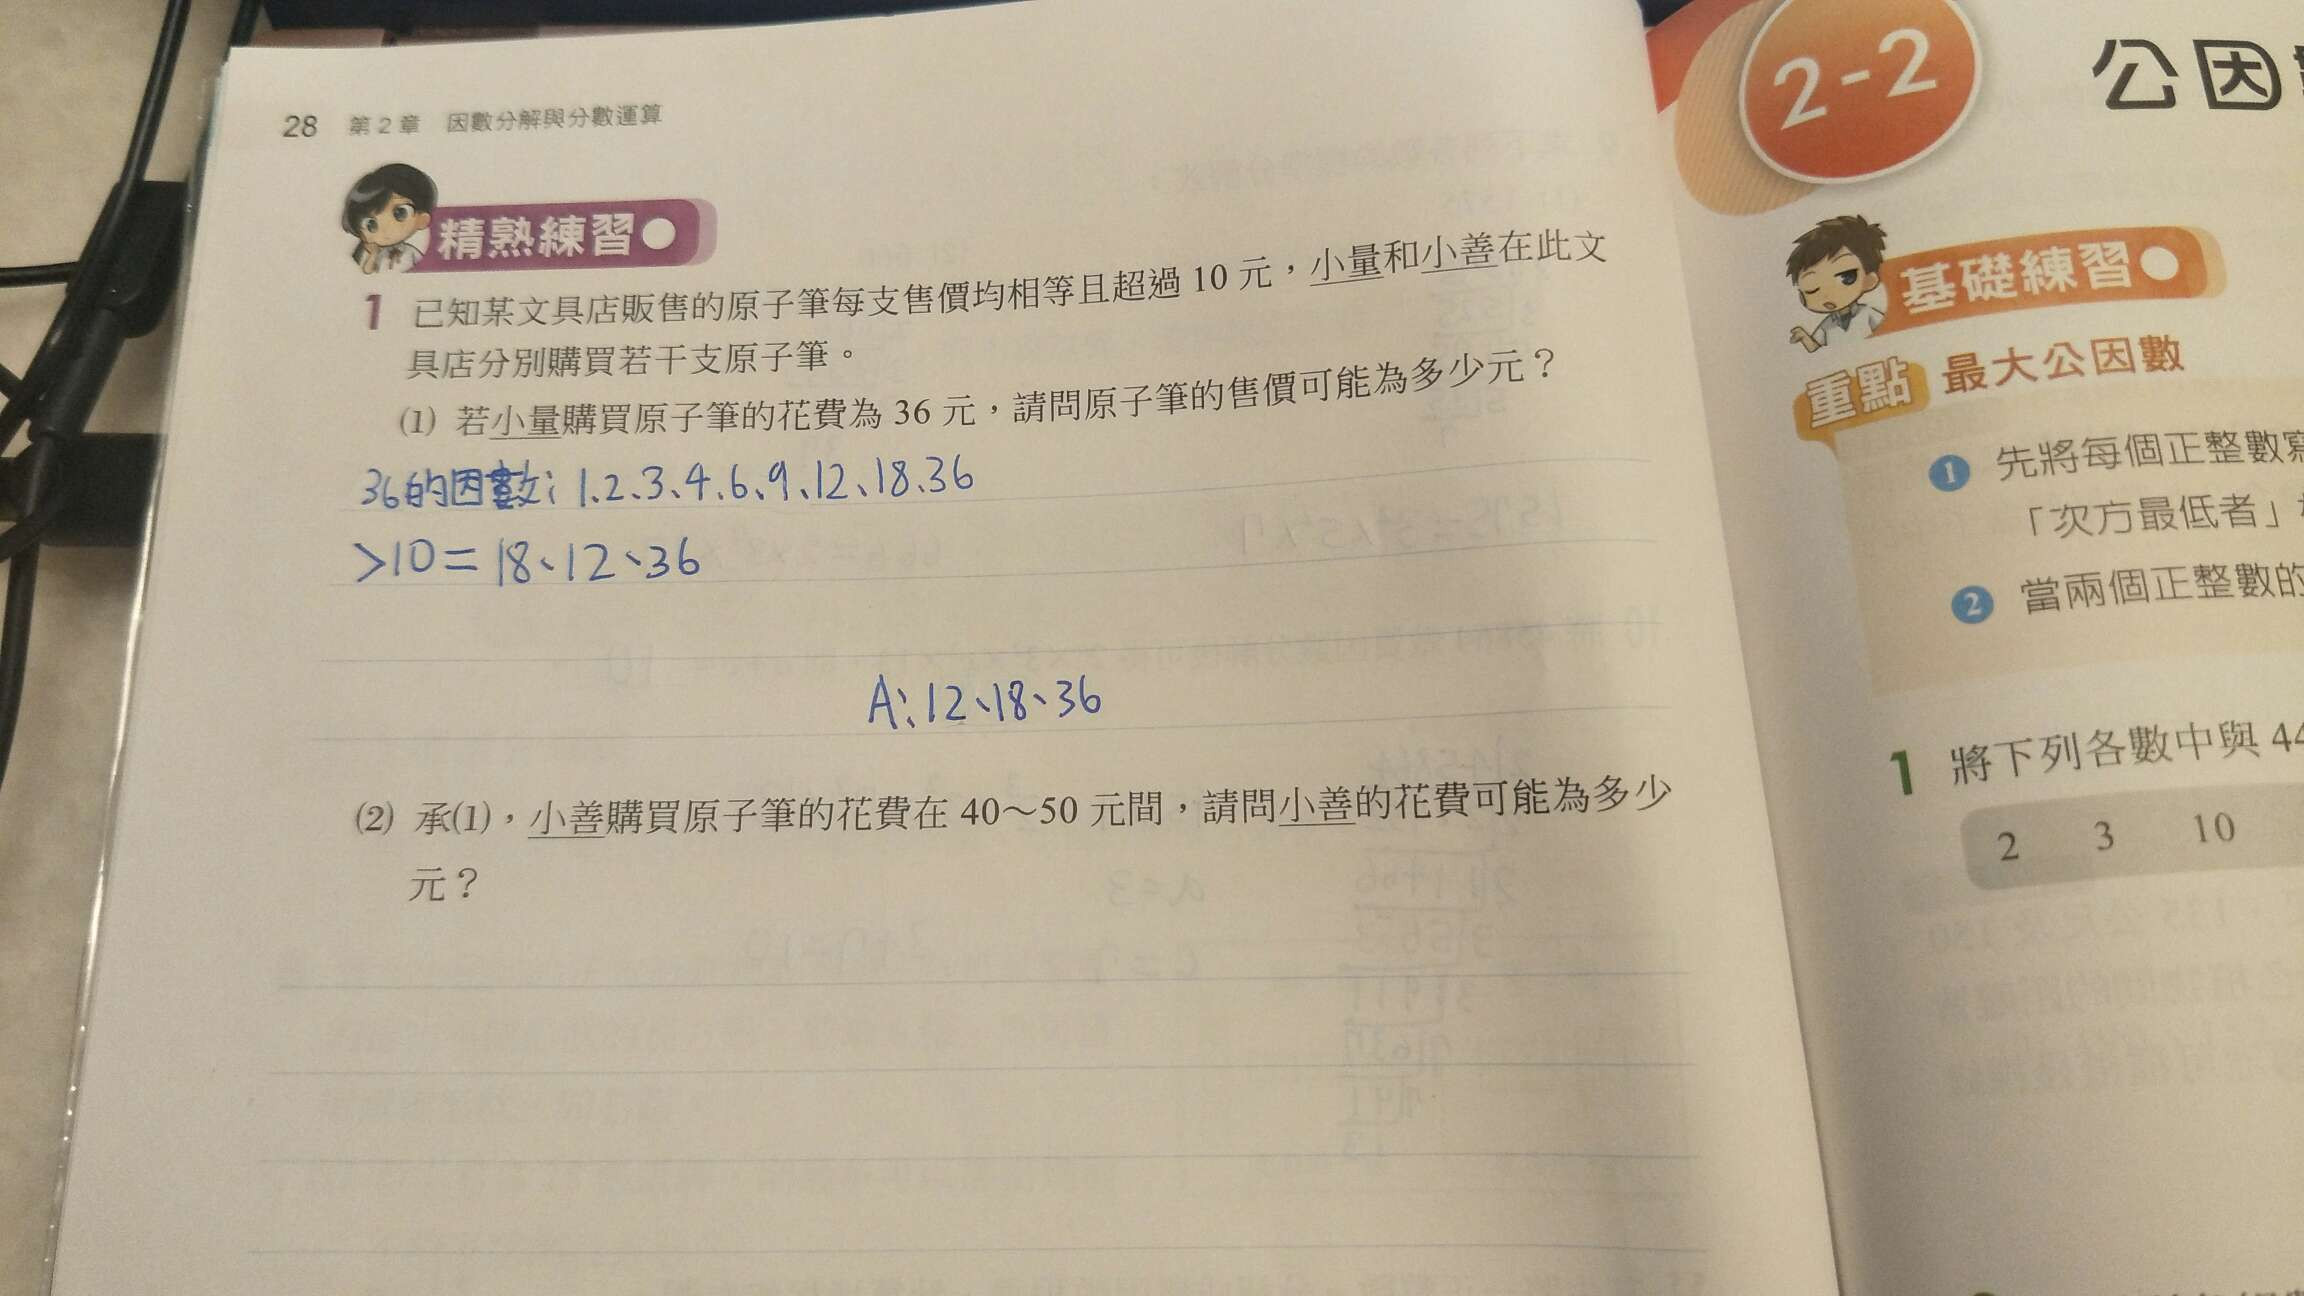 28 第2章 因數分解與分數運算
精熟練習
1 已知某文具店販售的原子筆每支售價均相等且超過 10 元，小量和小善在此文
具店分別購買若干支原子筆。
(1) 若小量購買原子筆的花費為 36 元，請問原子筆的售價可能為多少元？
36的因數：1、2、3、4、6、9、12、18、36
>10=18、12、36
A：12、18、36
(2) 承(1)，小善購買原子筆的花費在 40～50 元間，請問小善的花費可能為多少
元？
2-2 公因
基礎練習
重點 最大公因數
1 先將每個正整數寫
「次方最低者」
2 當兩個正整數的
1 將下列各數中與 44
2 3 10